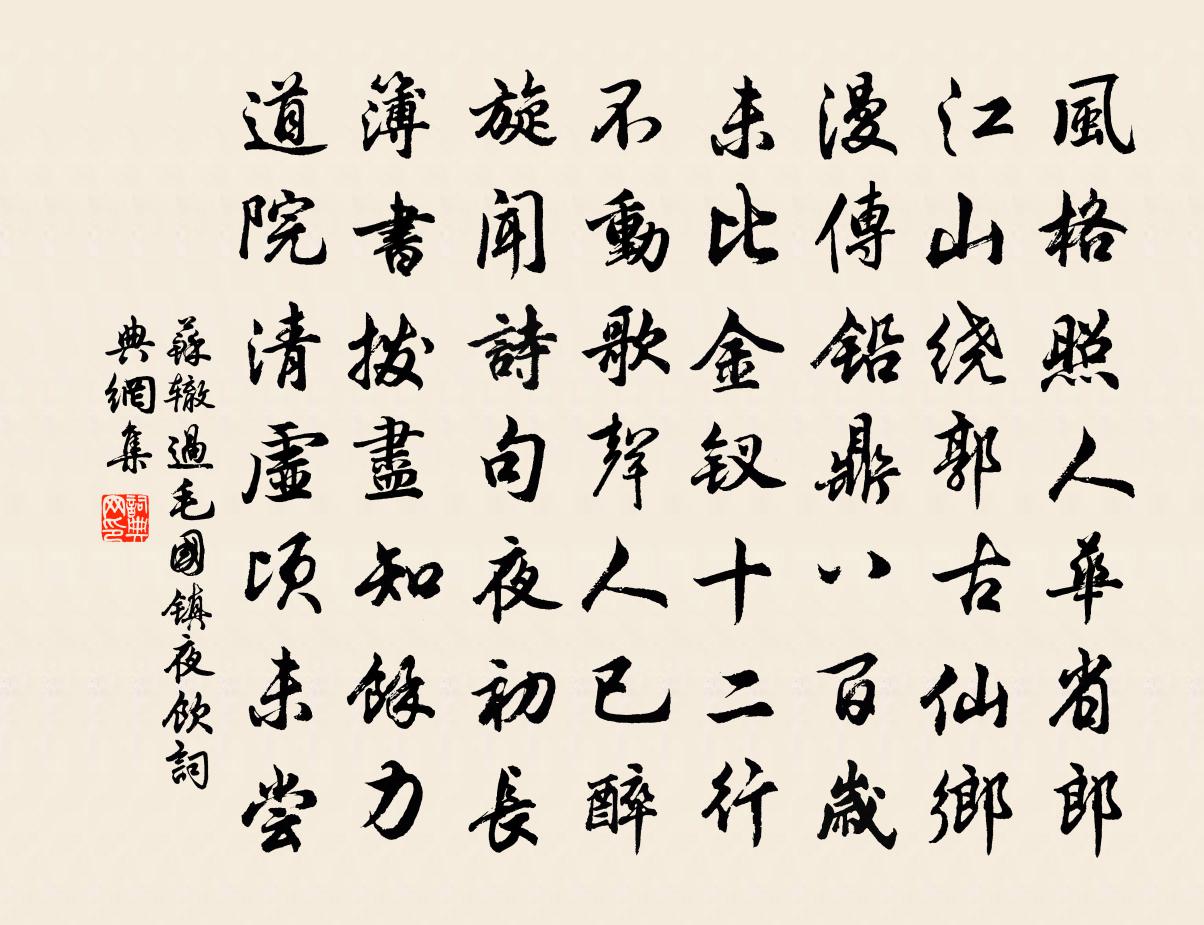 風格照人華省郎
江山绕郭古仙鄉
漫傳鉛鼎八百歲
未比金钗十二行
不動歌聲人已醉
旋聞詩句夜初長
簿書拨盡知餘力
道院清虛頃未嘗
蘇辙過毛國鎮夜飲詞
典網集
詞典网印